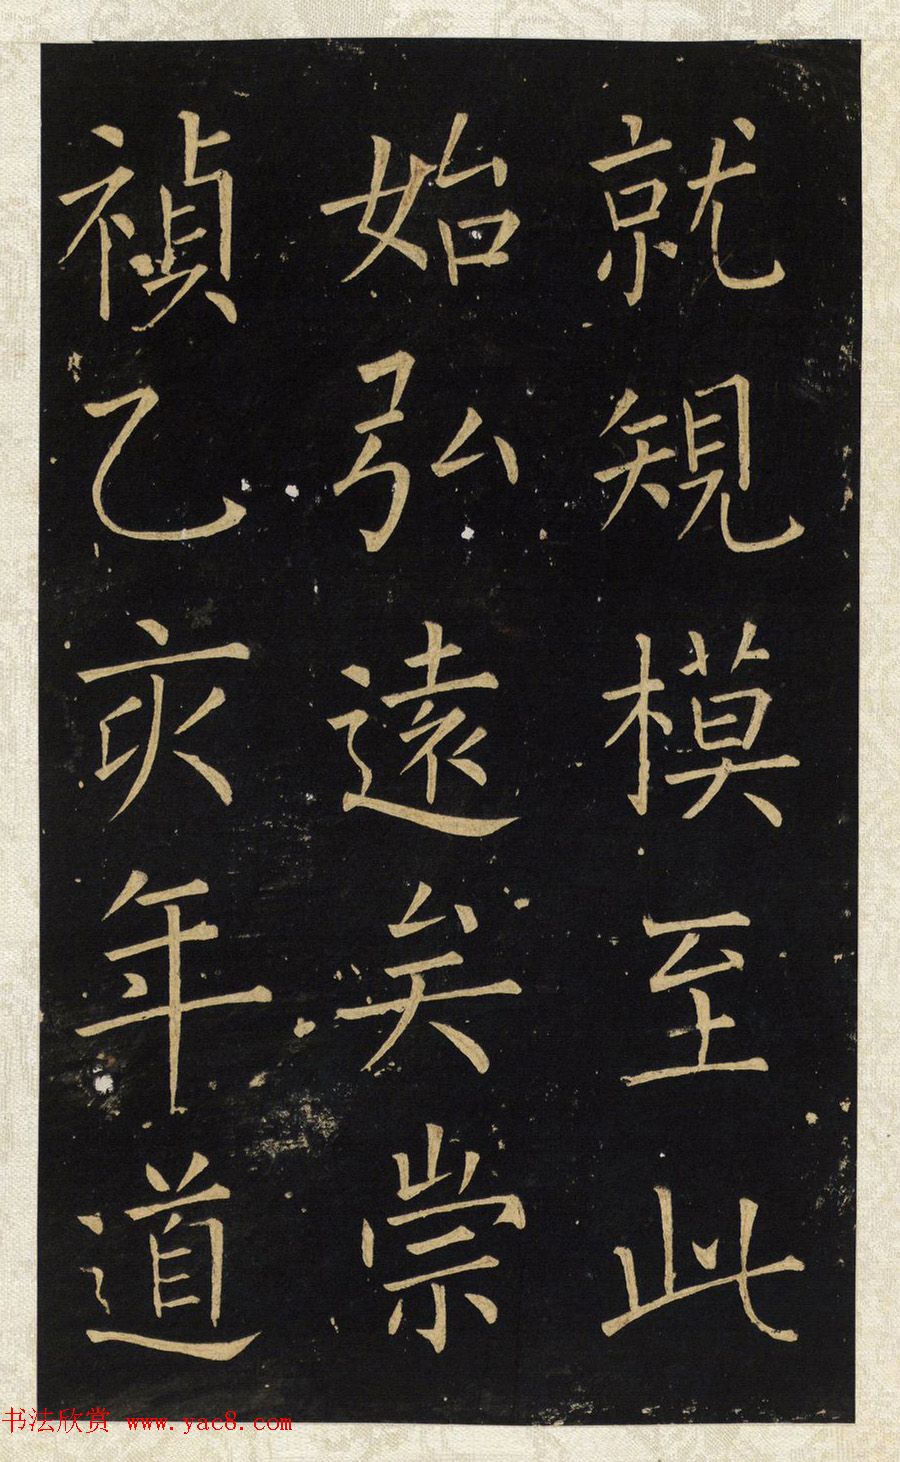 就規模至此
始弘遠矣崇
禎乙亥年道
书法欣赏 www.yac8.com